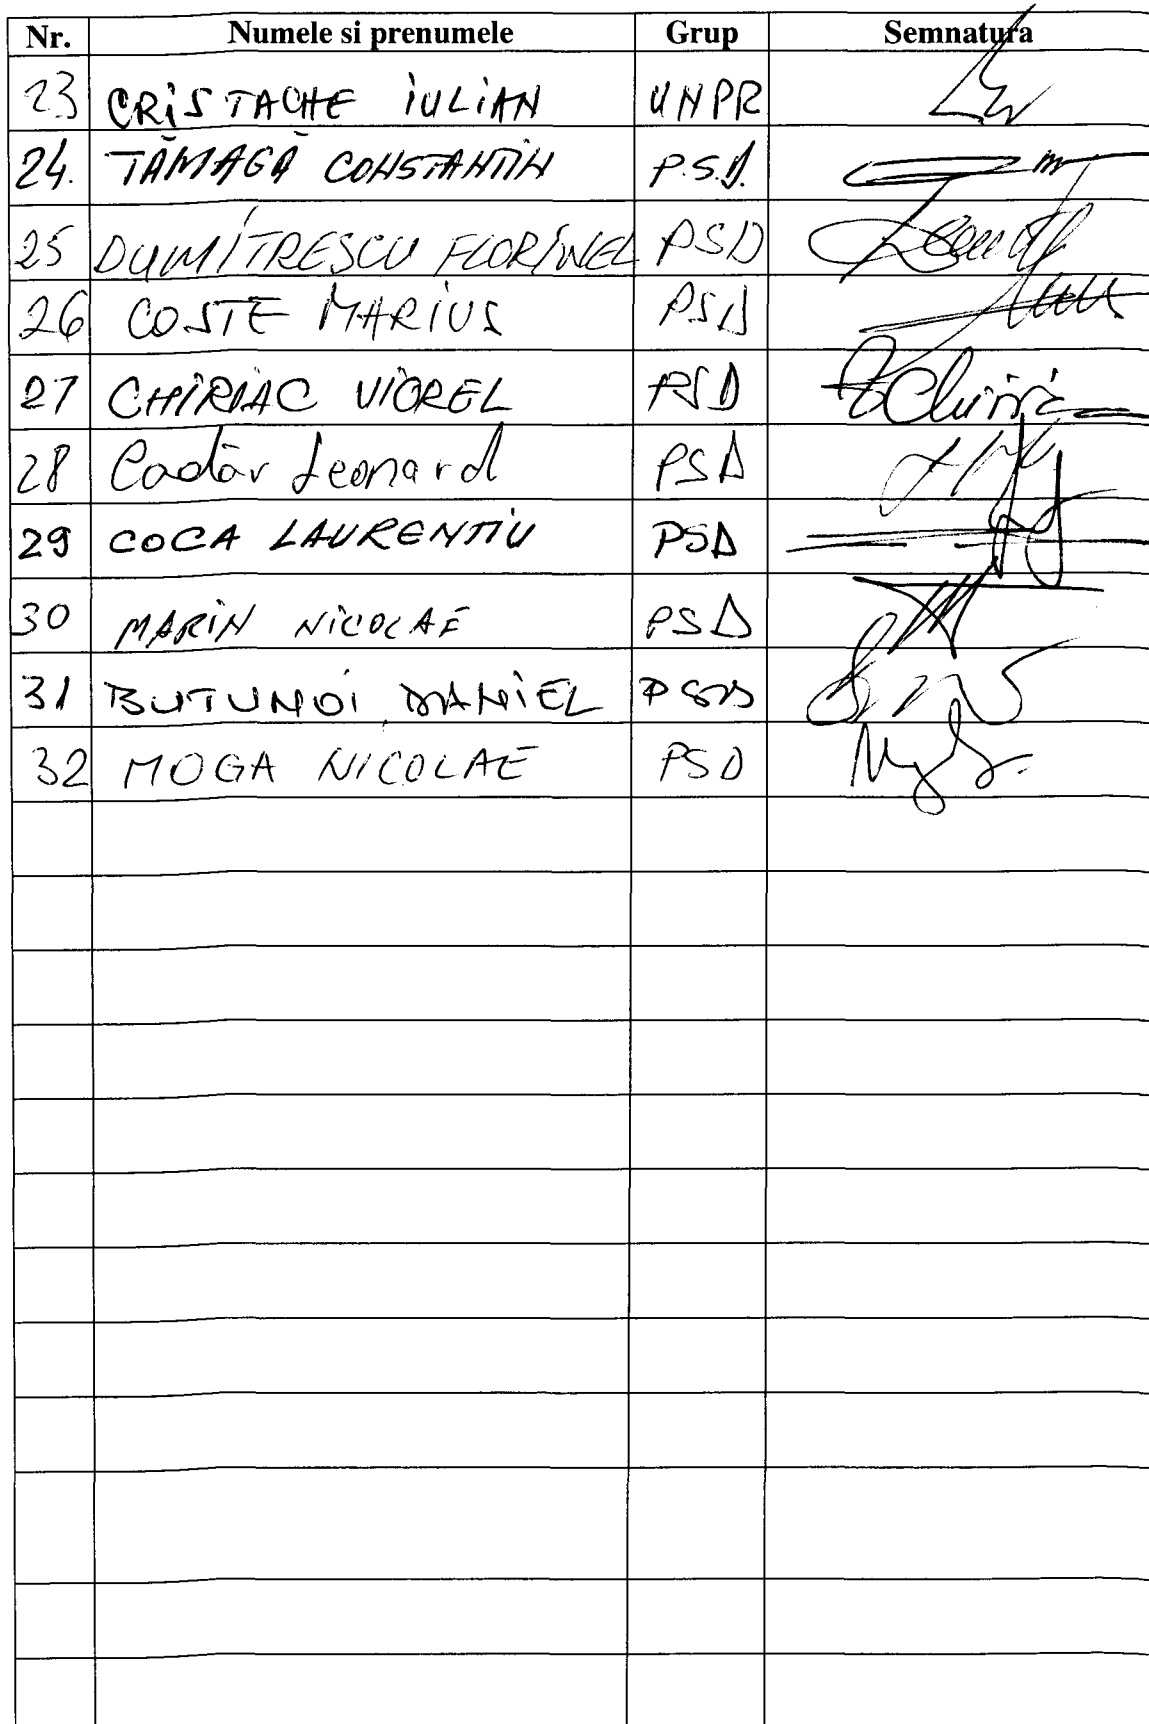 Nr. Numele si prenumele Grup Semnatura
23 CRiSTACHE iULiAN UNPR
24. TĂMAGĂ CONSTANTIN P.S.D.
25 DUMITRESCU FLORINEL PSD
26 COSTE MARIUS PSD
27 CHIRIAC VIOREL PSD
28 Cadăr Leonard PSD
29 COCA LAURENTIU PSD
30 MARIN NICOLAE PSD
31 BUTUNOI DANIEL PSD
32 MOGA NICOLAE PSD